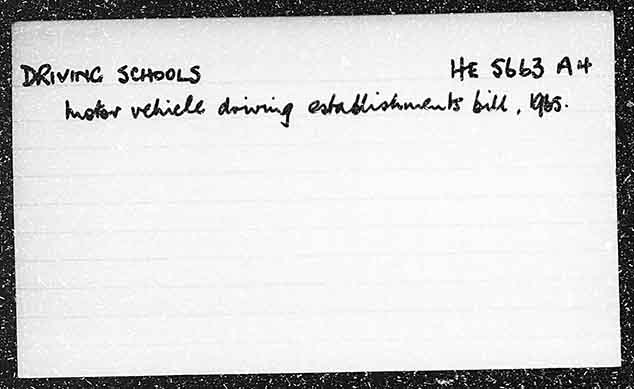 DRIVING SCHOOLS HE 5663 A4
Motor vehicle driving establishments bill, 1965.